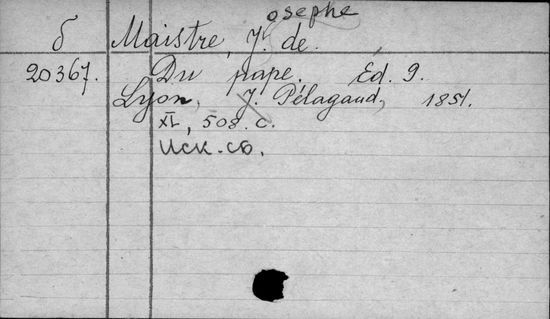 osephe
б Maistre, J. de.
20367. Du pape. Éd. 9.
Lyon, J. Pélagaud, 1851.
XL, 508 c.
Иск. сб.